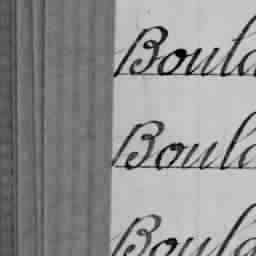 Bould
Bould
Bould